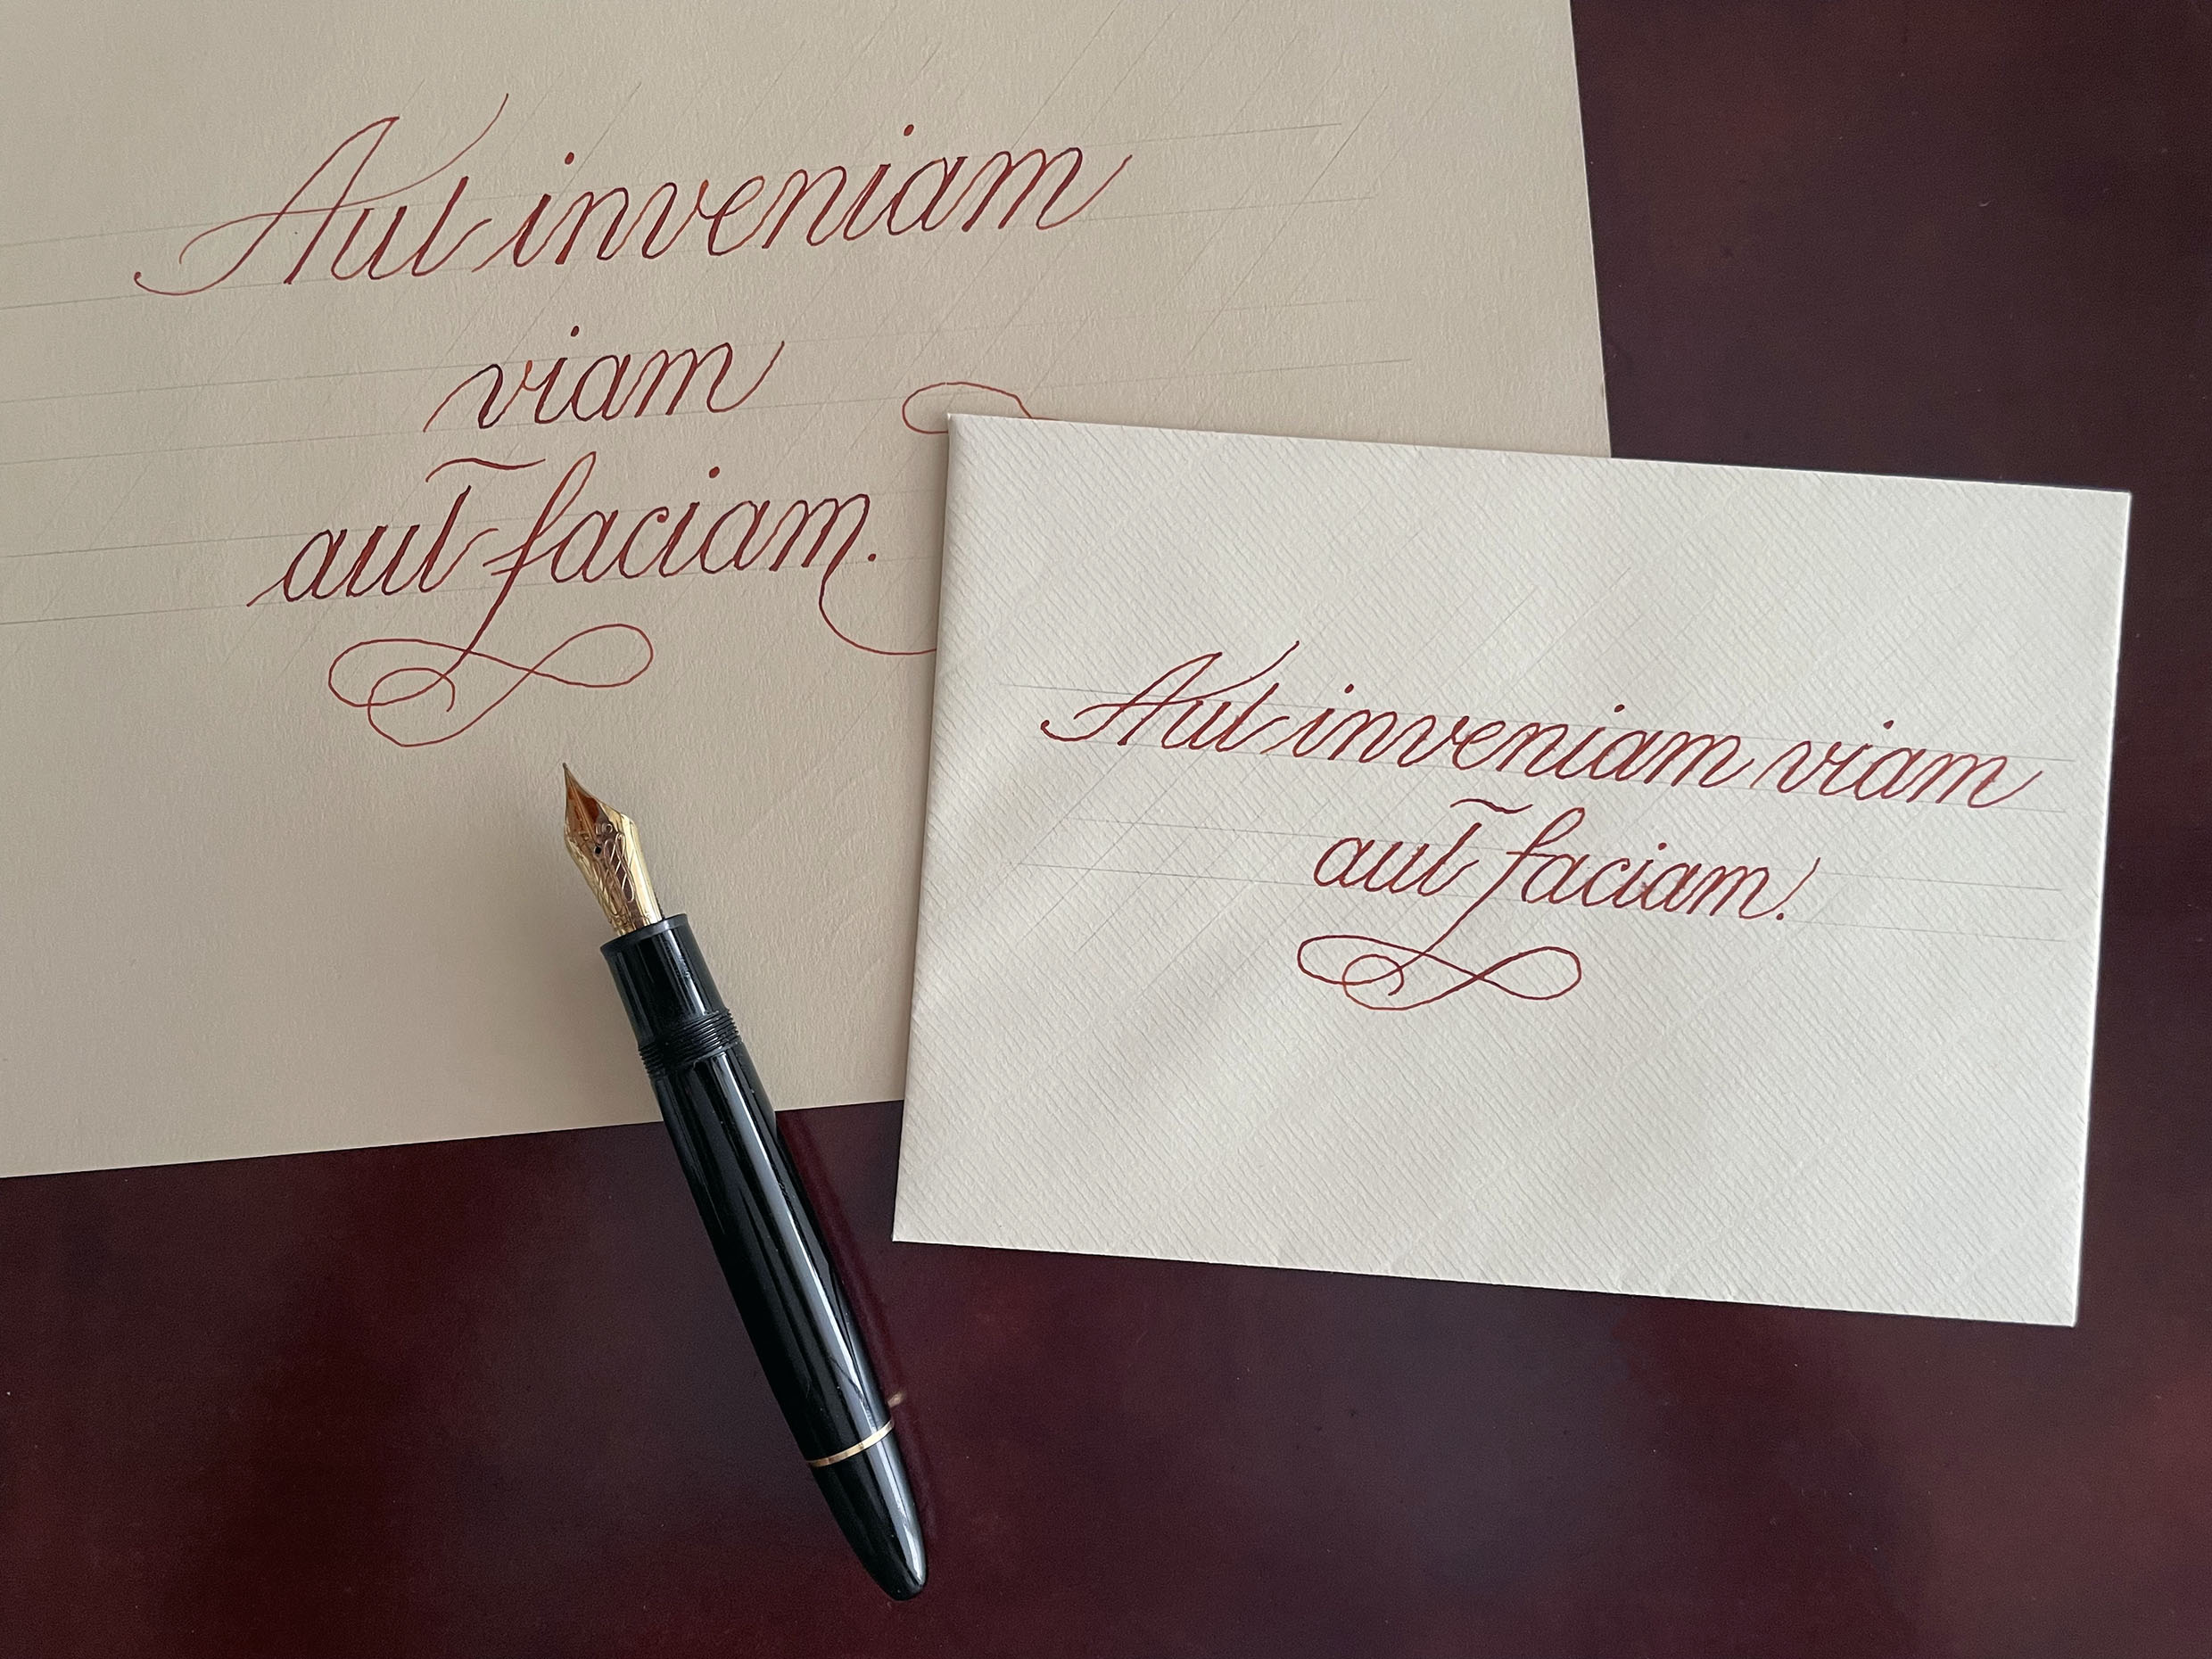 Aut inveniam
viam
aut faciam.
Aut inveniam viam
aut faciam.